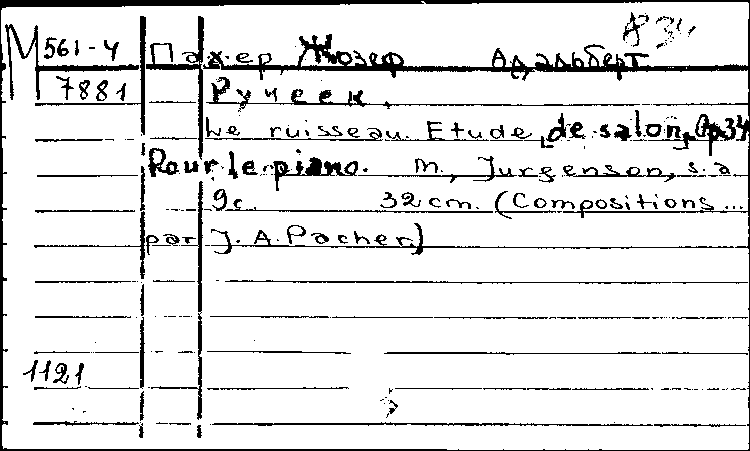 М 561-4 Пахер, Жозеф Адальберт
7881 Ручеек.
Le ruisseau. Etude de salon, Op34
Pour le piano. M., Jurgenson, s.a
9c. 32 cm. (Compositions...
par J. A. Pacher)
1121